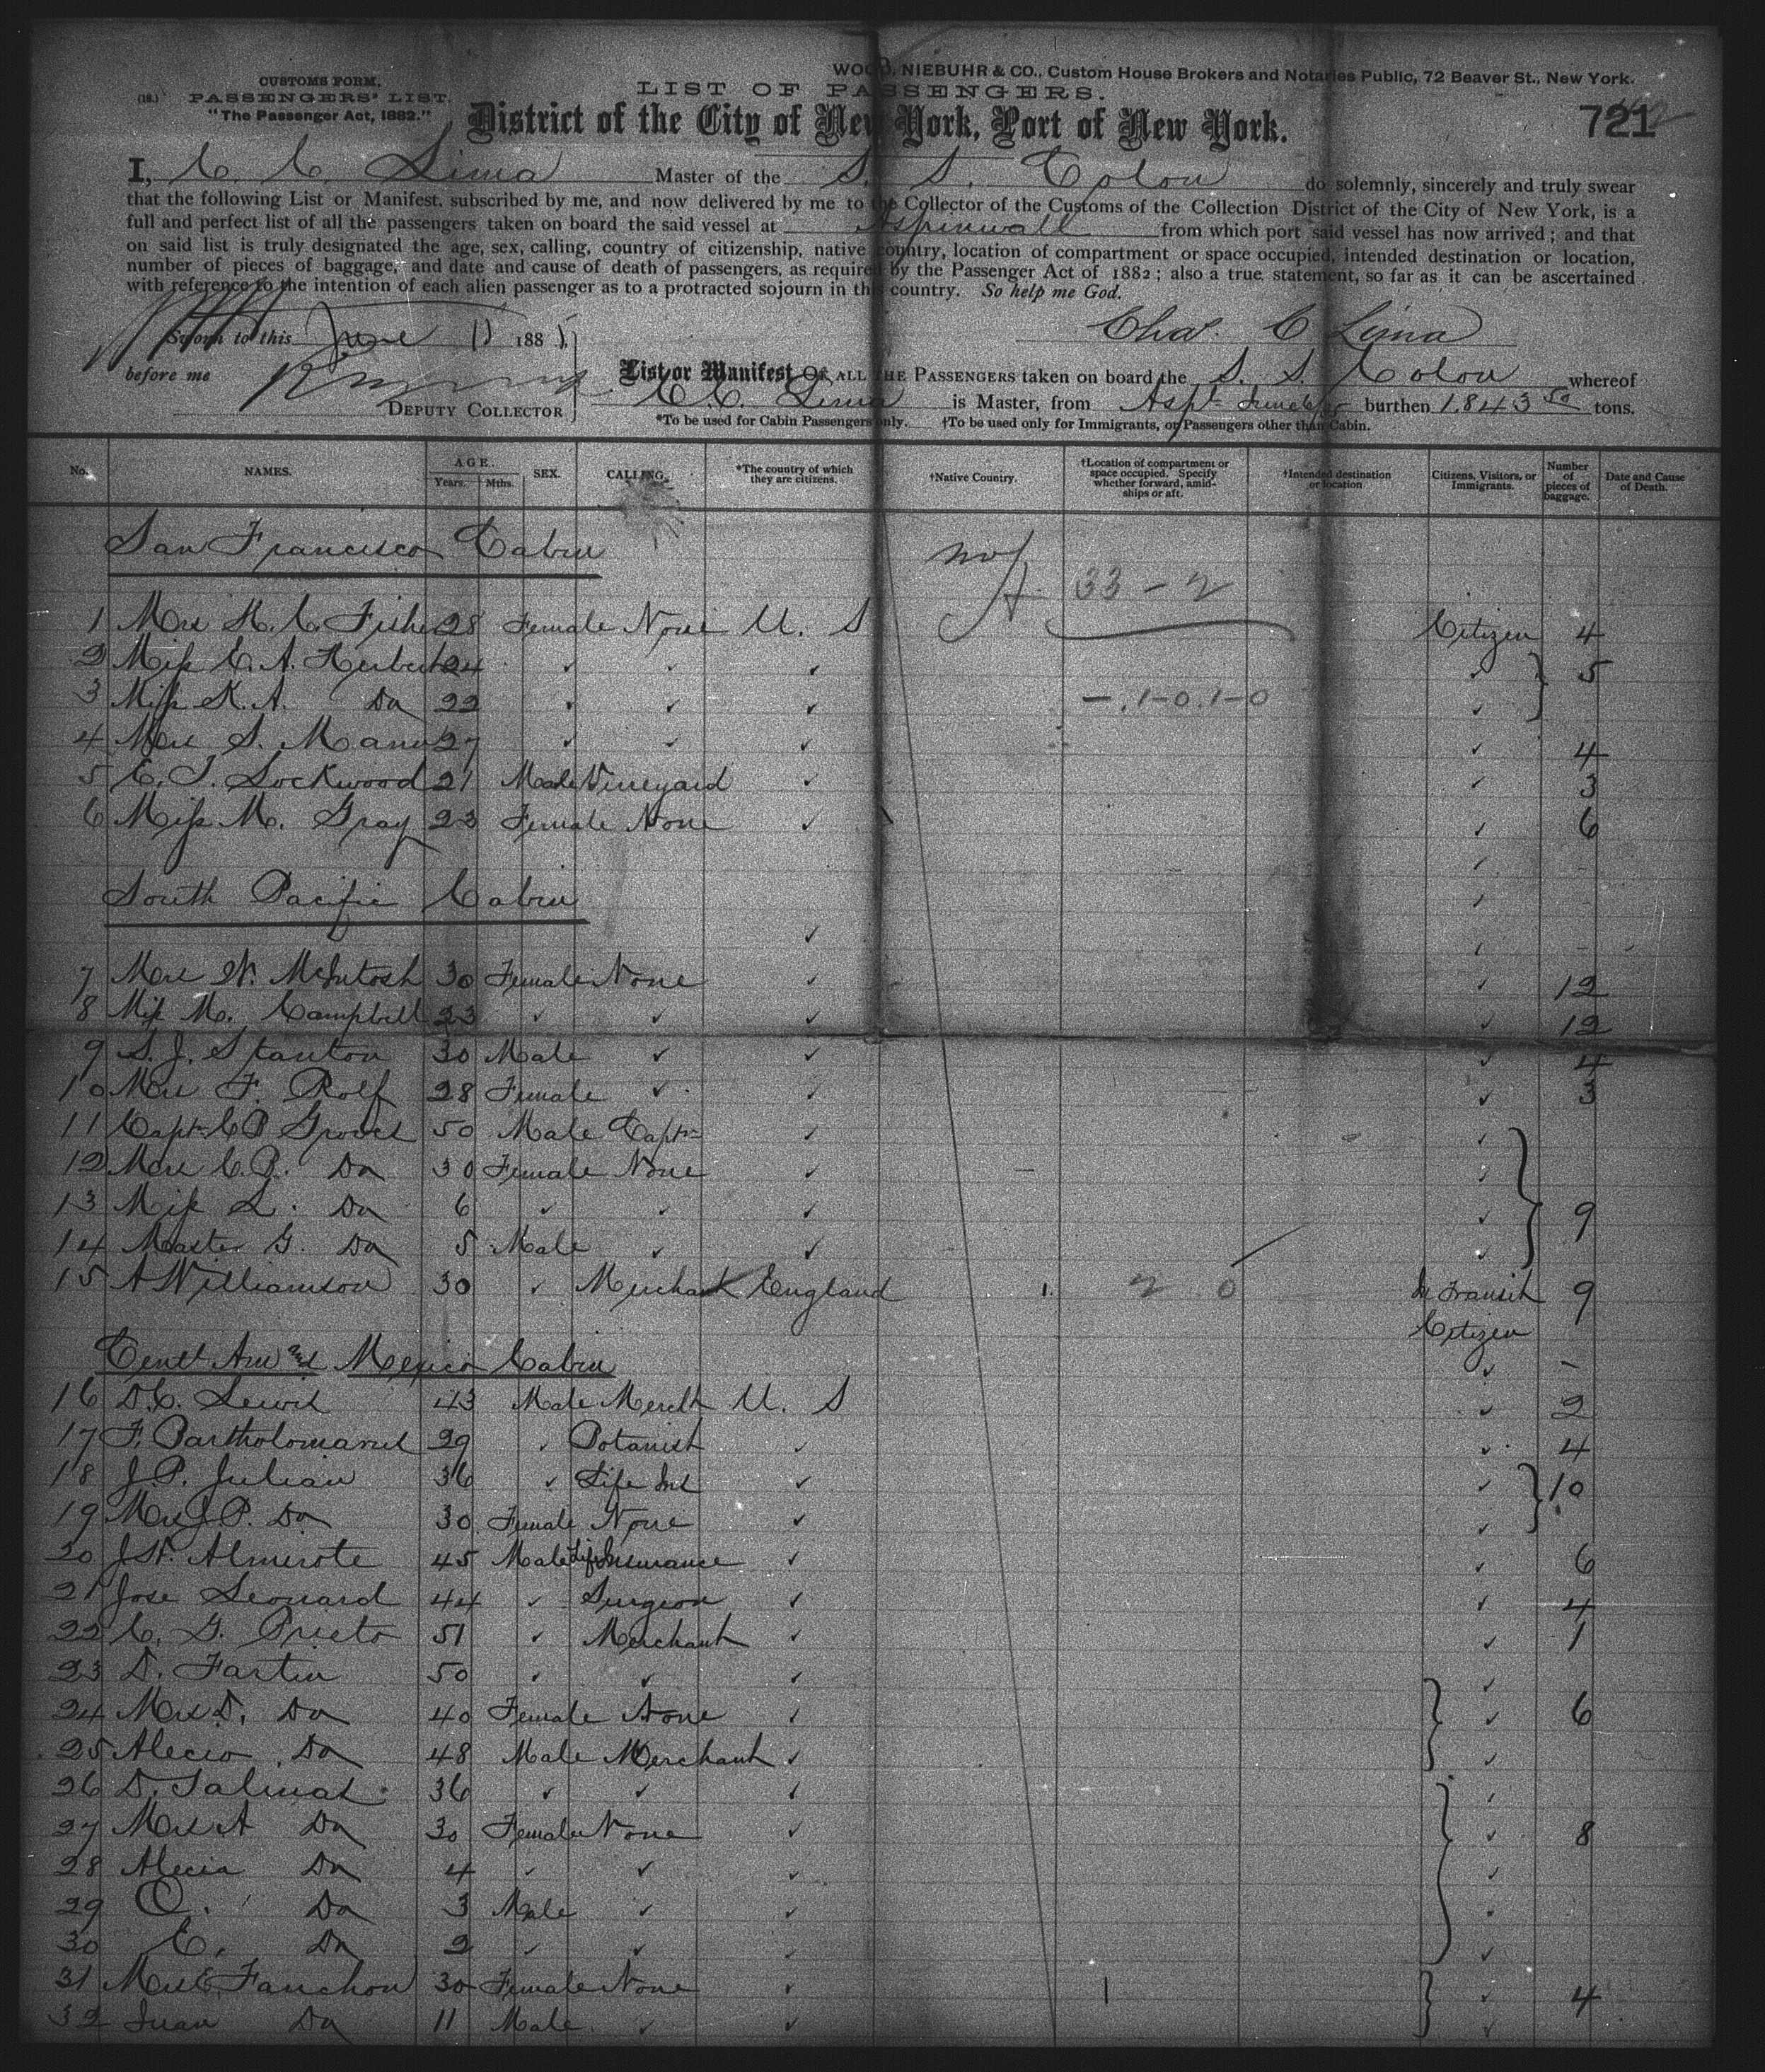 WOOD, NIEBUHR & CO., Custom House Brokers and Notaries Public, 72 Beaver St., New York.
CUSTOMS FORM.
(18.) PASSENGERS' LIST.
"The Passenger Act, 1882."
LIST OF PASSENGERS.
District of the City of New York, Port of New York.
721
I, C C Lima Master of the S. S. Colon do solemnly, sincerely and truly swear
that the following List or Manifest, subscribed by me, and now delivered by me to the Collector of the Customs of the Collection District of the City of New York, is a
full and perfect list of all the passengers taken on board the said vessel at Aspinwall from which port said vessel has now arrived; and that
on said list is truly designated the age, sex, calling, country of citizenship, native country, location of compartment or space occupied, intended destination or location,
number of pieces of baggage, and date and cause of death of passengers, as required by the Passenger Act of 1882; also a true statement, so far as it can be ascertained
with reference to the intention of each alien passenger as to a protracted sojourn in this country. So help me God.
Chas. C Lima
Sworn to this June 188
before me
DEPUTY COLLECTOR
List or Manifest OF ALL THE PASSENGERS taken on board the S. S. Colon whereof
C C. Lima is Master, from Aspl June burthen 1.843 50 tons.
*To be used for Cabin Passengers only. †To be used only for Immigrants, or Passengers other than Cabin.
No. NAMES. AGE. Years. Mths. SEX. CALLING. *The country of which they are citizens. †Native Country. †Location of compartment or space occupied. Specify whether forward, amidships or aft. †Intended destination or location Citizens, Visitors, or Immigrants. Number of pieces of baggage. Date and Cause of Death.
San Francisco Cabin
33 - 2
1 Mrs H. C. Fisher 28 Female None U. S Citizen 4
2 Miss E. A. Herbert 24 ✓ ✓ ✓ ✓ 5
3 Miss K. A. Do 22 ✓ ✓ ✓ ✓
- . 1-0. 1-0
4 Mrs S. Mann 27 ✓ ✓ ✓ ✓ 4
5 E. T. Lockwood 21 Male Vineyard ✓ ✓ 3
6 Miss M. Gray 23 Female None ✓ ✓ 6
South Pacific Cabin
7 Mrs W. McIntosh 30 Female None ✓ ✓ 12
8 Miss M. Campbell 23 ✓ ✓ ✓ ✓ 12
9 S. J. Stanton 30 Male ✓ ✓ ✓ 4
10 Mrs F. Rolf 28 Female ✓ ✓ ✓ 3
11 Capt C P Groves 50 Male Captn ✓ ✓
12 Mrs C. P. Do 30 Female None ✓ ✓
13 Miss L. Do 6 ✓ ✓ ✓ ✓ 9
14 Master G. Do 5 Male ✓ ✓ ✓
15 A Williamson 30 ✓ Merchant England 1. 2 0 In Transit 9
Citizen
Centl Am and Mexico Cabin
16 D. C. Lewis 43 Male Mercht U. S ✓ 2
17 F. Bartholomanes 29 ✓ Botanist ✓ ✓ 4
18 J. P. Julian 36 ✓ Life Ins ✓ ✓ 10
19 Mrs J. P. Do 30 Female None ✓ ✓
20 J. W. Almirote 45 Male Life Insurance ✓ ✓ 6
21 Jose Leonard 44 ✓ Surgeon ✓ ✓ 4
22 C. G. Prieto 51 ✓ Merchant ✓ ✓ 1
23 D. Fartin 50 ✓ ✓ ✓ ✓
24 Mrs D. Do 40 Female None ✓ ✓ 6
25 Alecio Do 48 Male Merchant ✓ ✓
26 D. Salinas 36 ✓ ✓ ✓ ✓
27 Mrs A Do 30 Female None ✓ ✓ 8
28 Alecia Do 4 ✓ ✓ ✓ ✓
29 O. Do 3 Male ✓ ✓ ✓
30 E. Do 2 ✓ ✓ ✓ ✓
31 Mrs E. Fanchon 30 Female None ✓ 1 ✓ 4
32 Juan Do 11 Male ✓ ✓ ✓